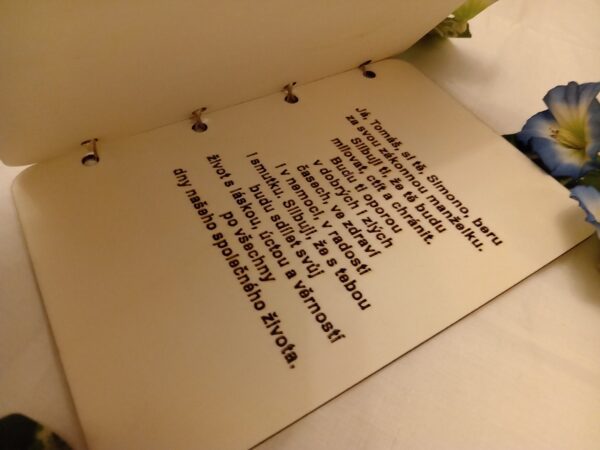 Já, Tomáš, si tě, Simono, beru
za svou zákonnou manželku.
Slibuji ti, že tě budu
milovat, ctít a chránit.
Budu ti oporou
v dobrých i zlých
časech, ve zdraví
i v nemoci, v radosti
i smutku. Slibuji, že s tebou
budu sdílet svůj
život s láskou, úctou a věrností
po všechny
dny našeho společného života.